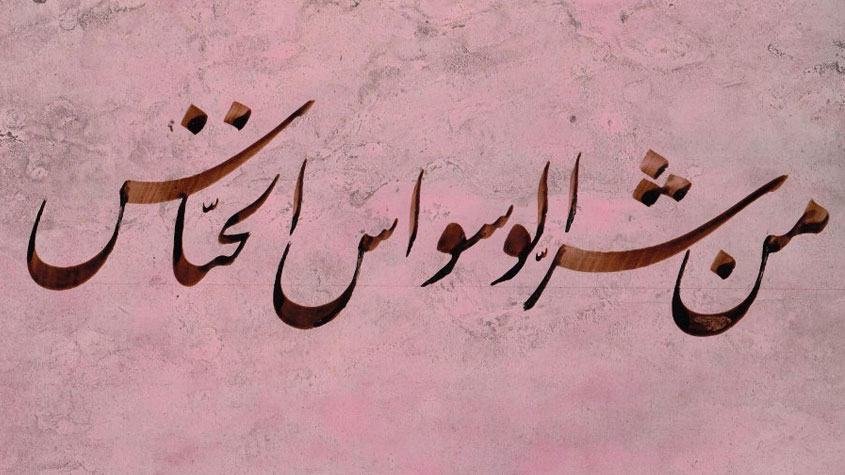 من شر الوسواس الخنّاس